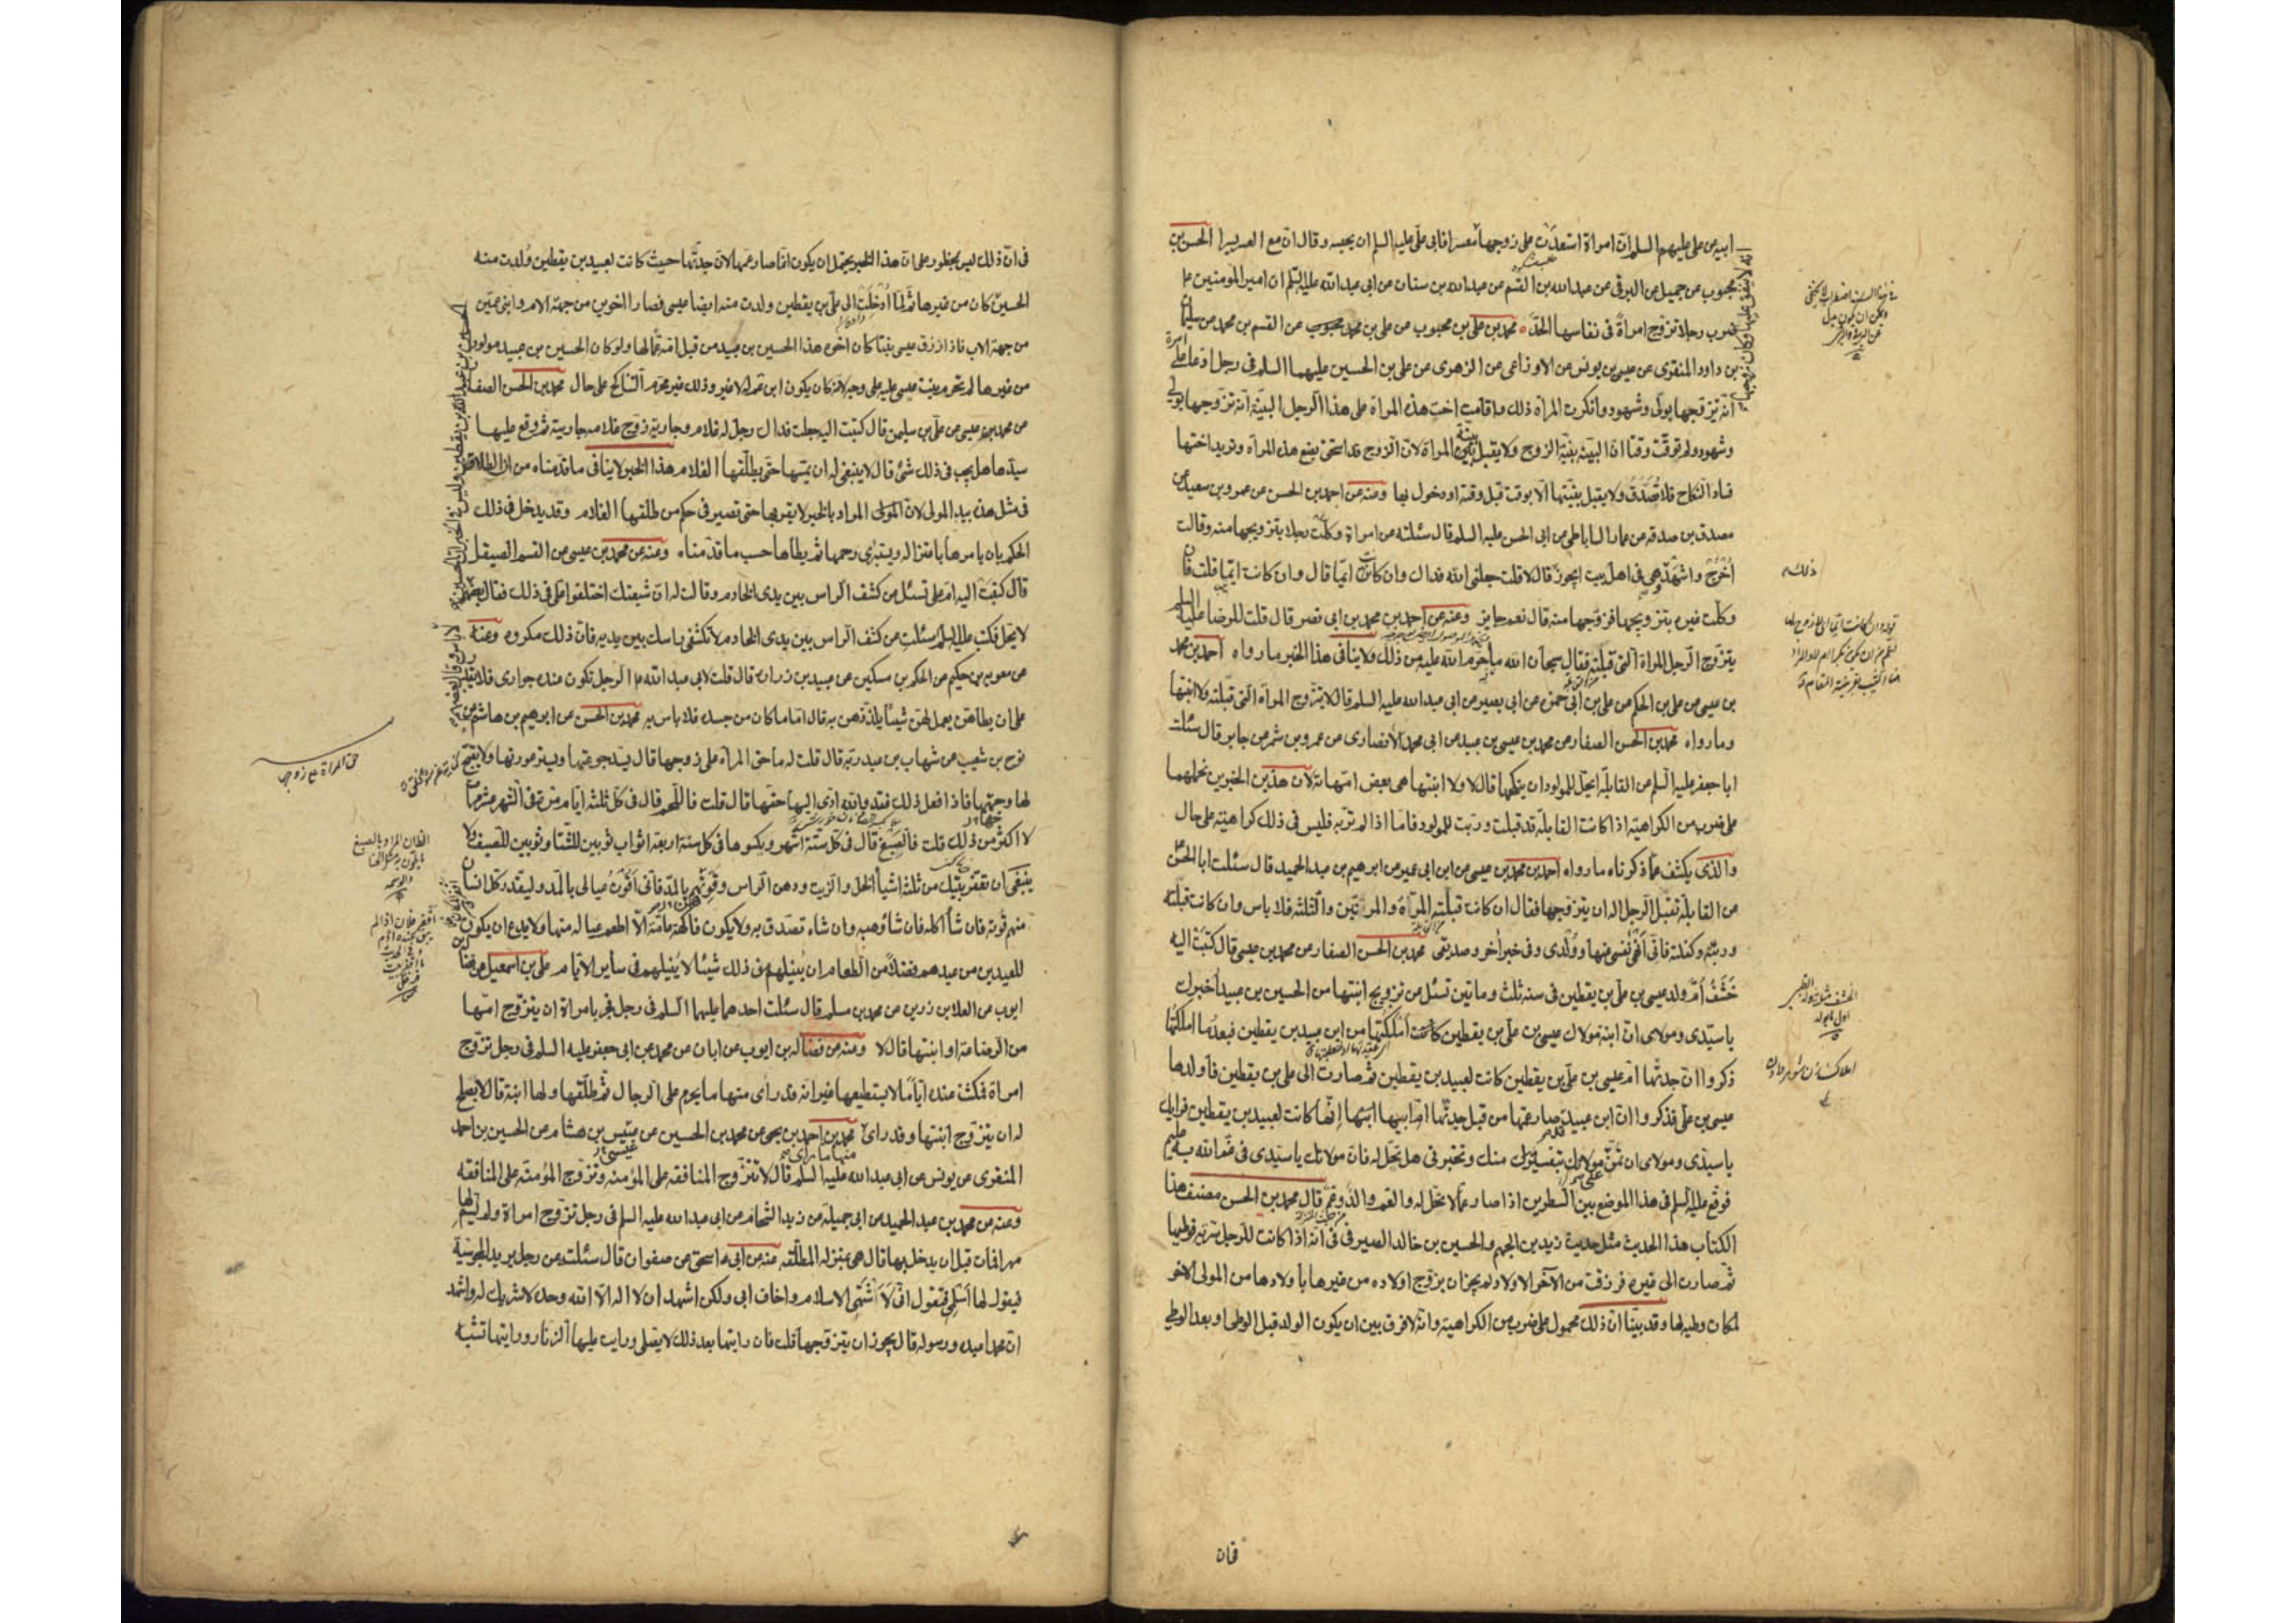 ابيه عن علي عليهم السلم ان امراة استعدت على زوجها معسرا فابى علي عليه السلم ان يحبسه وقال ان مع العسر يسرا الحسن بن
محبوب عن جميل عن البرقي عن عبد الله بن القسم عن عبد الله بن سنان عن ابي عبد الله عليه السلم ان امير المومنين ع
ضرب رجلا تزوج امراة في نفاسها الحد محمد بن علي بن محبوب عن علي بن محمد عن القسم بن محمد عن سليمان
بن داود المنقري عن عيسى بن يونس عن الاوزاعي عن الزهري عن علي بن الحسين عليهما السلم في رجل ادعا على امراة
انه تزوجها بولي وشهود وانكرت المراة ذلك واقامت اخت هذه المراة على هذا الرجل البينة انه تزوجها بولي
وشهود ولم توقت وقتا ان البينه بينة الزوج ولا يقبل بينة المراة لان الزوج قد استحق بضع هذه المراة وتريد اختها
فساد النكاح فلا تصدق ولا يقبل بينتها الا بوقت قبل وقته او دخول بها وعنه عن احمد بن الحسن عن عمرو بن سعيد عن
مصدق بن صدقه عن عمار الساباطي عن ابي الحسن عليه السلم قال سئلته عن امراة وكلت رجلا بتزويجها منه وقالت
اخرج واشهد وهي في اهل بيت ايجوز قال لا قلت جعلني الله فداك وان كانت ايما قال وان كانت ايما قلت فان
وكلت غيره بتزويجها فزوجها منه قال نعم جايز وعنه عن احمد بن محمد بن ابي نصر قال قلت للرضا عليه السلم
يتزوج الرجل المراة التي قبلته فقال سبحان الله ما حرم الله عليه من ذلك ولا ينافي هذا الخبر ما رواه احمد بن محمد
بن عيسى عن علي بن الحكم عن علي بن ابي حمزه عن ابي بصير عن ابي عبد الله عليه السلم قال لا تتزوج المراة التي قبلته ولا ابنتها
وما رواه محمد بن الحسن الصفار عن محمد بن عيسى بن عبيد عن ابي محمد الانصاري عن عمرو بن شمر عن جابر قال سئلت
ابا جعفر عليه السلم عن القابلة ايحل للمولود ان ينكحها قال لا ولا ابنتها هي بعض امهاته لان هذين الخبرين نحملهما
على ضرب من الكراهية اذا كانت القابلة قد قبلت وربت المولود فاما اذا لم تربه فليس في ذلك كراهية على حال
والذي يكشف عما ذكرناه ما رواه احمد بن محمد بن عيسى عن ابن ابي عمير عن ابرهيم بن عبد الحميد قال سئلت ابا الحسن
عن القابلة تقبل الرجل اله ان يتزوجها فقال ان كانت قبلته المرة والمرتين والثلثه فلا باس وان كانت قبلته
وربته وكفلته فاني انهى نفسي عنها وولدي وفي خبر اخر وصديقي محمد بن الحسن الصفار عن محمد بن عيسى قال كتبت اليه
خشف ام ولد عيسى بن علي بن يقطين في سنه ثلث وماتين تسئل عن تزويج ابنتها من الحسين بن عبيد اخبرك
يا سيدي ومولاي ان ابنة مولاك عيسى بن علي بن يقطين كانت املكتها من ابن عبيد بن يقطين فبعد ما املكتها
ذكروا ان جدتها ام عيسى بن علي بن يقطين كانت لعبيد بن يقطين ثم صارت الى علي بن يقطين فاولدها
عيسى بن علي فذكروا ان ابن عبيد صار عمها من قبل جدتها ام ابيها انها كانت لعبيد بن يقطين فرايك
يا سيدي ومولاي ان تمن على مولاتك بتفسير منك وتخبرني هل تحل له فان مولاتك يا سيدي في غم الله به عليم
فوقع عليه السلم في هذا الموضع بين السطرين اذا صار عما لا تحل له والعم والد وعم قال محمد بن الحسن مصنف هذا
الكتاب هذا الحديث مثل حديث زيد بن الجهم والحسين بن خالد الصيرفي في انه اذا كانت للرجل سرية فوطيها
ثم صارت الى غيره فرزقت من الآخر اولادا لم يجز ان يزوج اولاده من غيرها باولادها من المولى الاخر
لمكان وطيه لها وقد بينا ان ذلك محمول على ضرب من الكراهية وانه لا فرق بين ان يكون الولد قبل الوطي او بعد الوطي
فان
في ان ذلك ليس بمحظور على ان هذا الخبر يحتمل ان يكون انما صار عمها لان جدتها حيث كانت لعبيد بن يقطين ولدت منه
الحسين كان من غيرها ثم لما ادخلت الى علي بن يقطين ولدت منه ايضا عيسى فصارا اخوين من جهة الام وابني عمين
من جهة الاب فاذا رزق عيسى بنتا كان اخوه هذا الحسين بن عبيد من قبل امه عما لها ولو كان الحسين بن عبيد مولودا
من غيرها لم تحرم بنت عيسى عليه على وجه لانه كان يكون ابن عم له لا غير وذلك غير محرم التناكح على حال محمد بن الحسن الصفار
عن محمد بن عيسى عن علي بن سليمن قال كتبت اليه جعلت فداك رجل له غلام وجارية زوج غلامه جاريته ثم وقع عليها
سيدها هل يجب في ذلك شئ قال لا ينبغي له ان يمسها حتى يطلقها الغلام هذا الخبر لا ينافي ما قدمناه من ان الطلاق
في مثل هذه بيد المولى لان المولى المراد بالخبر لا يقربها حتى تصير في حكم من طلقها الغلام وقد يدخل في ذلك
الحكم بان يامرها باعتزاله ويستبري رحمها ثم يطأها حسب ما قدمناه وعنه عن محمد بن عيسى عن القسم الصيقل
قال كتبت اليه ام علي تسئل عن كشف الراس بين يدي الخادم وقالت له ان شيعتك اختلفوا علي في ذلك فقال بعضهم
لا يحل فكتب عليه السلم سئلت عن كشف الراس بين يدي الخادم لا تكشفي راسك بين يديه فان ذلك مكروه وعنه
عن معويه بن حكيم عن الحكم بن مسكين عن عبيد بن زراره قال قلت لابي عبد الله ع الرجل تكون عنده جواري فلا يقدر
على ان يطاهن يعمل لهن شيئا يلذذهن به قال اما ما كان من جسده فلا باس به محمد بن الحسن عن ابرهيم بن هاشم عن
نوح بن شعيب عن شهاب بن عبد ربه قال قلت له ما حق المراة على زوجها قال يسد جوعتها ويستر عورتها ولا يقبح
لها وجها فاذا فعل ذلك فقد والله ادى اليها حقها قال قلت فالدهن قال في كل ثلثه ايام
لا اكثر من ذلك قلت فالصبغ قال في كل ستة اشهر ويكسوها في كل سنة اربعة اثواب ثوبين للشتا وثوبين للصيف ولا
ينبغي ان تفقر بيتك من ثلثة اشياء الخل والزيت ودهن الراس وقوتهم بالمد فاني اقوت عيالي بالمد وليقدر كل انسان
منهم قوته فان شا اكله فان شا وهبه وان شاء تصدق به ولا يكون فاكهة عامة الا اطعم عياله منها ولا يدع ان يكون
للعيد بن من عيدهم فضلا من الطعام ان ينيلهم من ذلك شيئا لا ينيلهم في ساير الايام علي بن اسمعيل عن فضالة بن
ايوب عن العلا بن رزين عن محمد بن مسلم قال سئلت احدهما عليهما السلم في رجل فجر بامراة ان يتزوج امها
من الرضاعة او ابنتها قال لا وعنه عن فضالة بن ايوب عن ابان عن محمد عن ابي جعفر عليه السلم في رجل تزوج
امراة فمكثت عنده اياما لا يستطيعها غير انه قد راى منها ما يحرم على الرجال ثم طلقها ولها ابنة قال لا يصلح
له ان يتزوج ابنتها وقد راى منها ما راى محمد بن احمد بن يحيى عن محمد بن الحسين عن عتيس بن هشام عن الحسين بن احمد
المنقري عن يونس عن ابي عبد الله عليه السلم قال لا تتزوج المنافقه على المؤمنه وتزوج المؤمنة على المنافقه
وعنه عن محمد بن عبد الحميد عن ابي جميلة عن زيد الشحام عن ابي عبد الله عليه السلم في رجل تزوج امراة ولم يسم لها
مهرا فمات قبل ان يدخل بها قال هي بمنزله المطلقه عنه عن ابي اسحق عن صفوان قال سئلته عن رجل يريد المجوسية
فيقول لها اسلمي فتقول اني لا اشتهي الاسلام واخاف ابي ولكن اشهد ان لا اله الا الله وحده لا شريك له واشهد
ان محمدا عبده ورسوله قال يجوز ان يتزوجها قلت فان رايتها بعد ذلك لا تصلي ورايت عليها الزنار ورايتها تشبه
حق المراة على زوجها